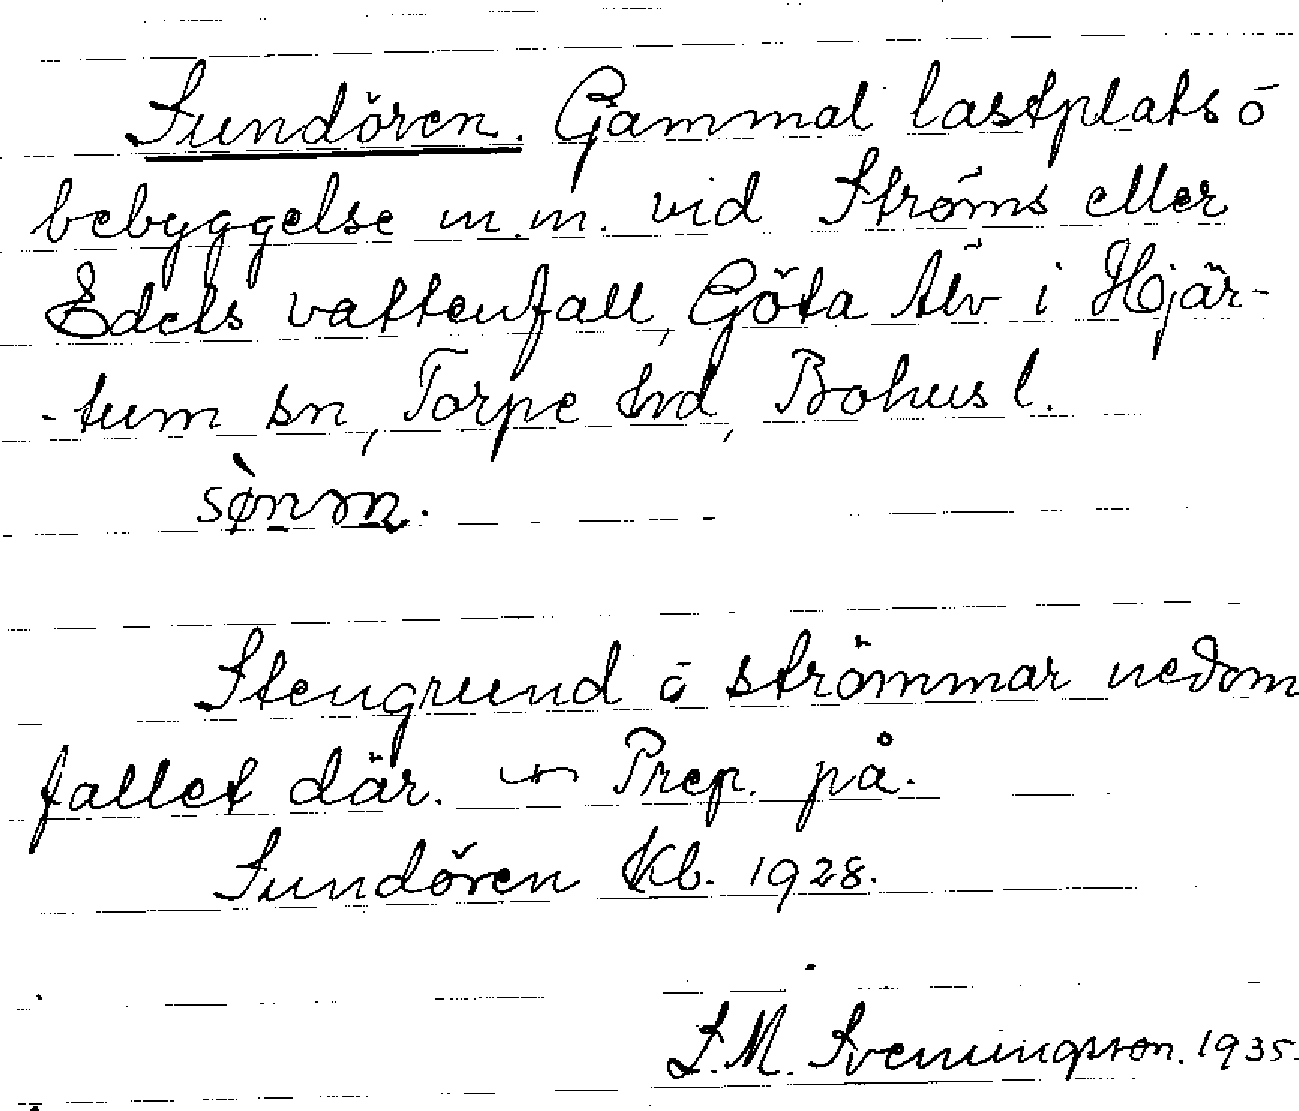 Sundören. Gammal lastplats o
bebyggelse m.m. vid Ströms eller
Edets vattenfall, Göta älv i Hjär-
-tum sn, Torpe hrd, Bohusl.
Stengrund o strömmar nedom
fallet där. — Prep. på.
Sundören Kb. 1928.
S.M. Svenungsson. 1935.